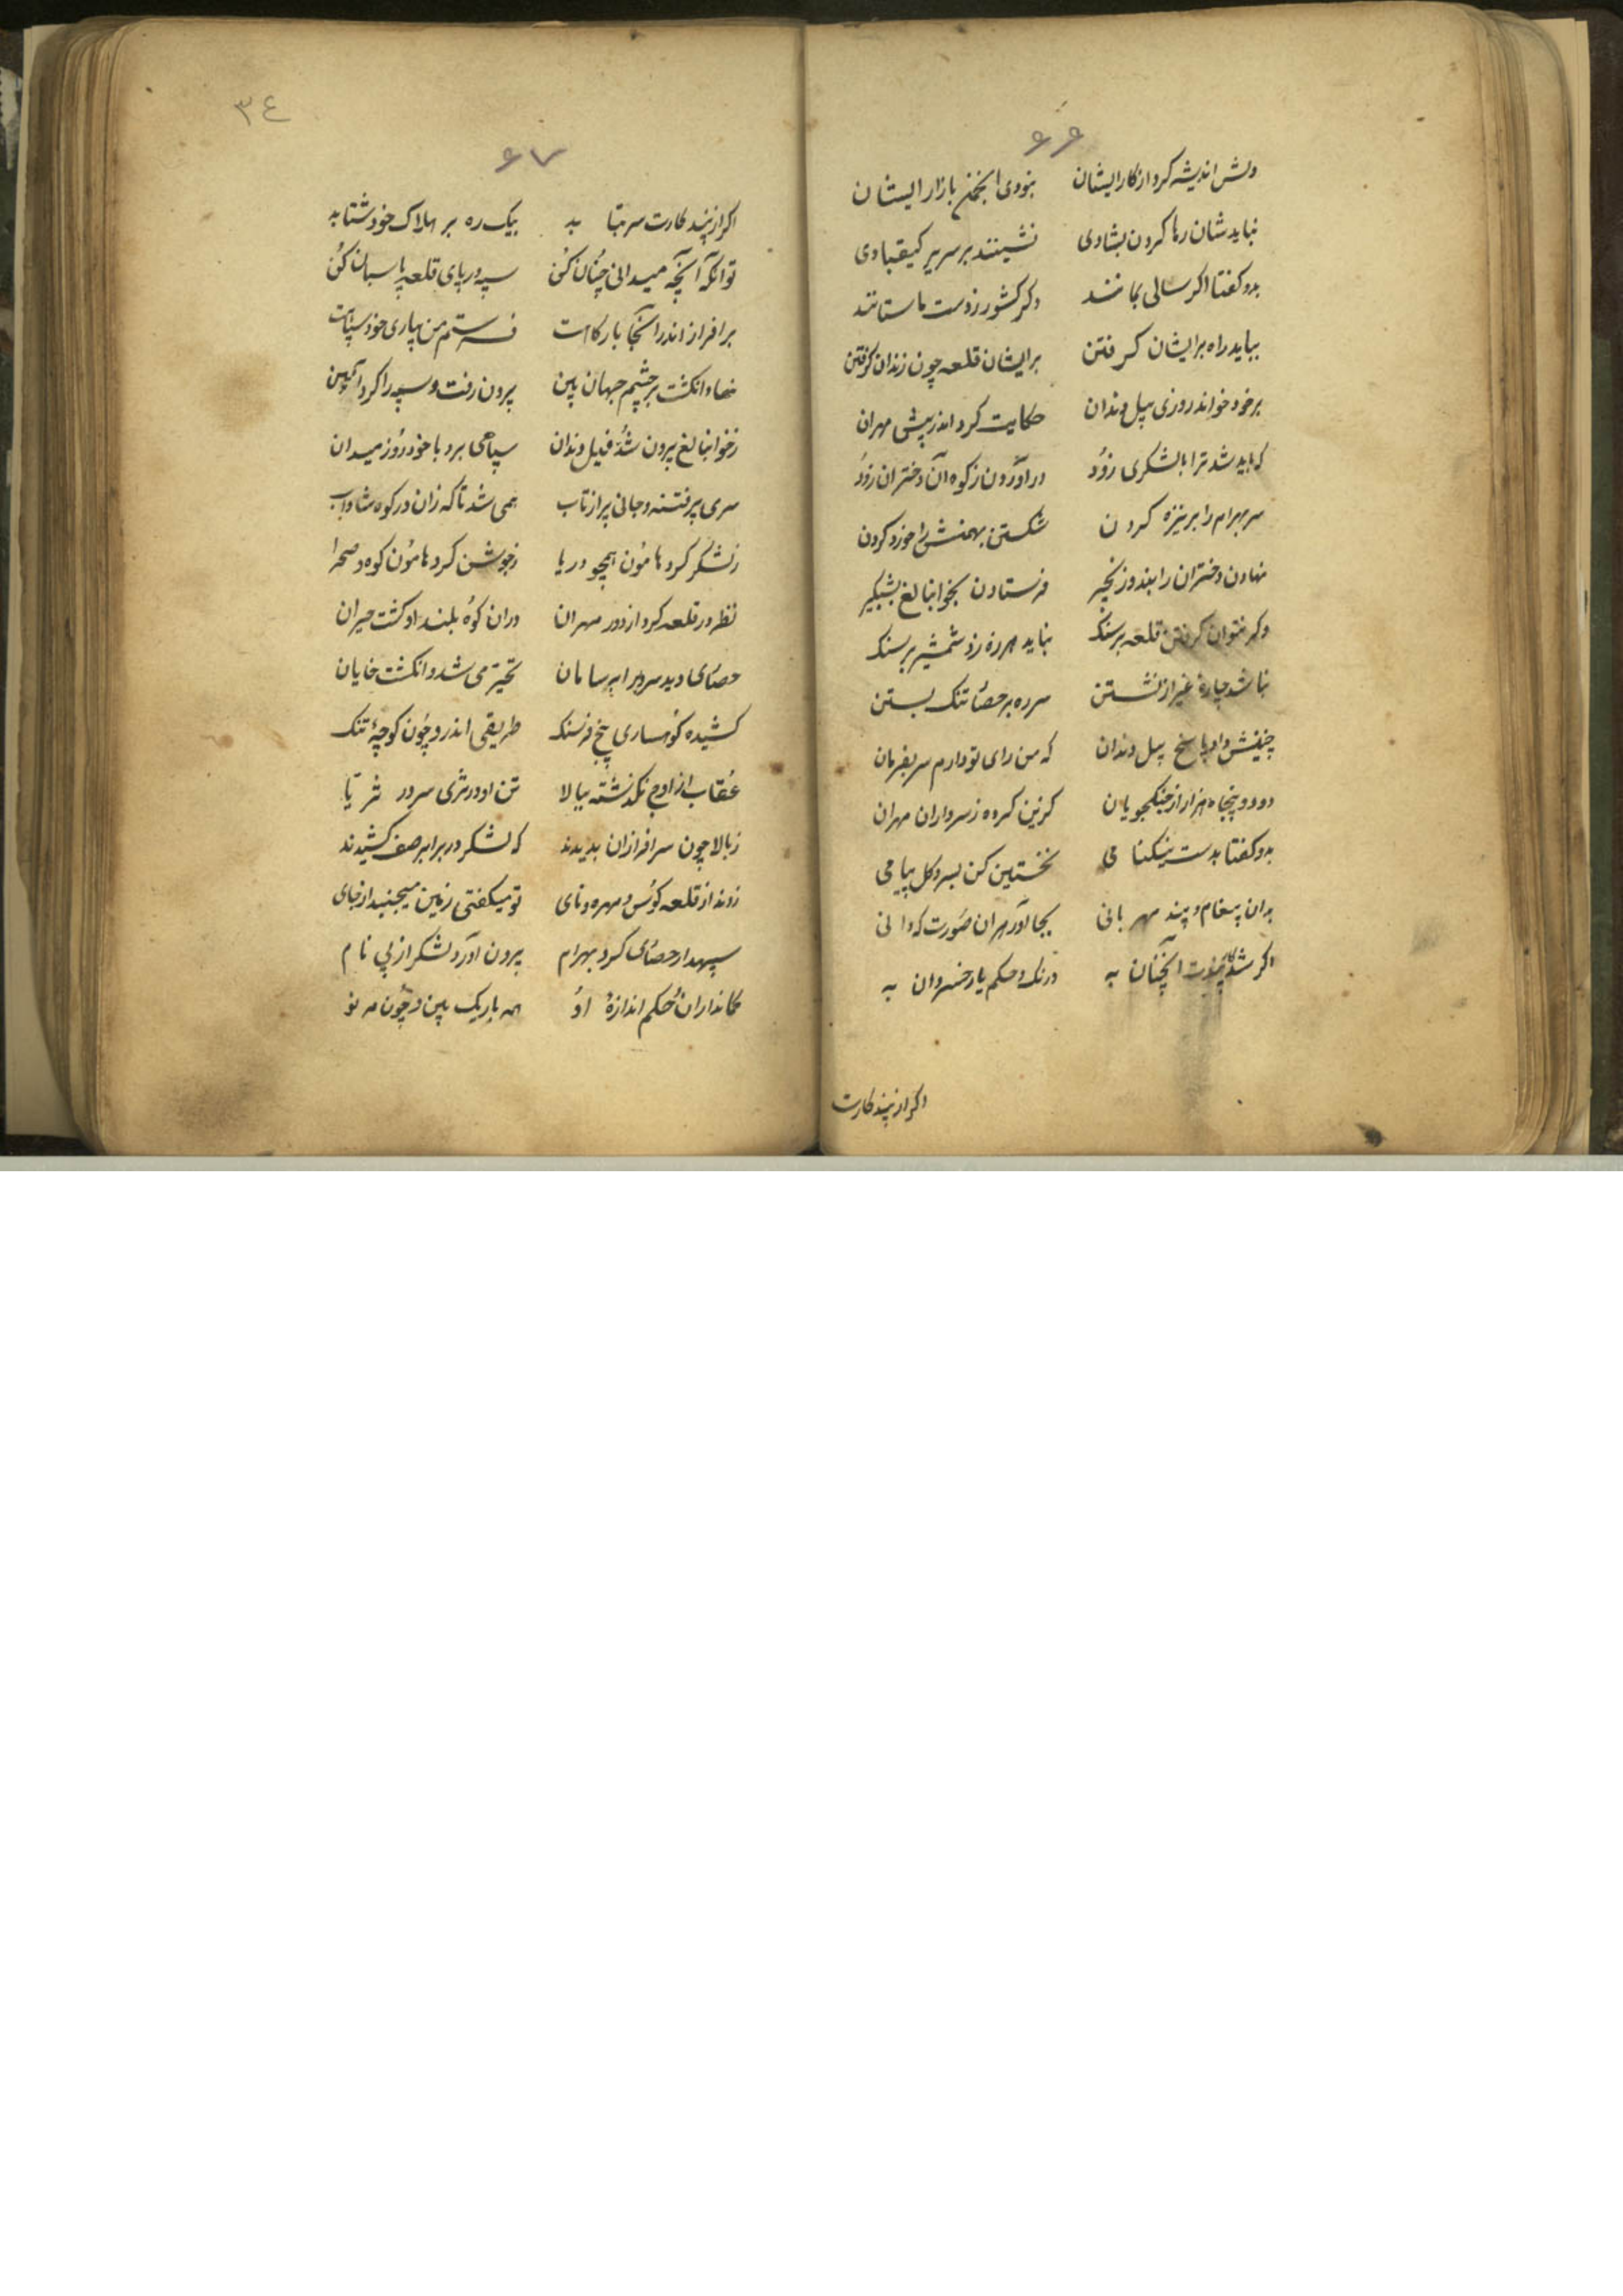 ۶۶
دلش اندیشه کرد از کار ایشان بنودی انجمن بازار ایشان
نباید شان رها کردن بشادی نشینند بر سریر کیقبادی
بدو کفتا اکر سالی بمانند دکر کشور زدست ما ستانند
بباید راه بر ایشان کرفتن بر ایشان قلعه چون زندان کرفتن
بر خود خواند روزی پیل دندان حکایت کرد اندر پیش مهران
که باید شد ترا با لشکری زود در آوردن ز کوه آن دختران زود
سر بهرام را بر نیزه کردن شکستن بهمنش را خورد کردن
نهادن دختران را بند و زنجیر فرستادن بخوانبالغ بشبکیر
وکر نتوان کرفتن قلعه بر سنک نباید هرزه زد شمشیر بر سنک
نباشد چارهٔ غیر از نشستن سر ره بر حصا تنک بستن
چنینش داد پاسخ پیل دندان که من رای تو دارم سر بفرمان
دو و پنجاه هزار از جنکجویان کزین کرده ز سرداران مهران
بدو کفتا بدست نیکنامی نخستین کن بسر و کل پیامی
بدان پیغام و پند مهربانی بجا آور بهران صورت که دانی
اکر شد آنچنان به درنک و حکم یار خسروان به
وکر از پند کارت
۳٤
۶۷
اکر از پند کارت سر بتابد بیک ره بر هلاک خود شتابد
تو آنکه آنچه میدانی چنان کن سپه در پای قلعه پاسبان کن
بر افراز اندر آنجا بارکاهت فرستم من بیاری خود سپاهت
نهاد انکشت بر چشم جهان بین برون رفت و سپه را کرد آیین
ز خوانبالغ برون شد فیل دندان سپاهی برد با خود روز میدان
سری پر فتنه و جانی پر از تاب همی شد تا که زان در کوه شاداب
ز لشکر کرد هامون همچو دریا ز جوشن کرد هامون کوه و صحرا
نظر در قلعه کرد از دور مهران دران کوه بلند او کشت حیران
حصاری دید سر بر ابر سامان تحیر می شد و انکشت خایان
کشیده کوهساری پنج فرسنک طریقی اندر و چون کوچهٔ تنک
عقاب از اوج نکذشته ببالا تن او در ثری سر در ثریا
ز بالا چون سرافرازان بدیدند که لشکر در برابر صف کشیدند
زدند از قلعه کوس و مهره و نای تو میکفتی زمین میجنبد از جای
سپهدار حصاری کرد بهرام برون آورد لشکر از پی نام
کمانداران حکم اندازهٔ او همه باریک بین و چون مه نو